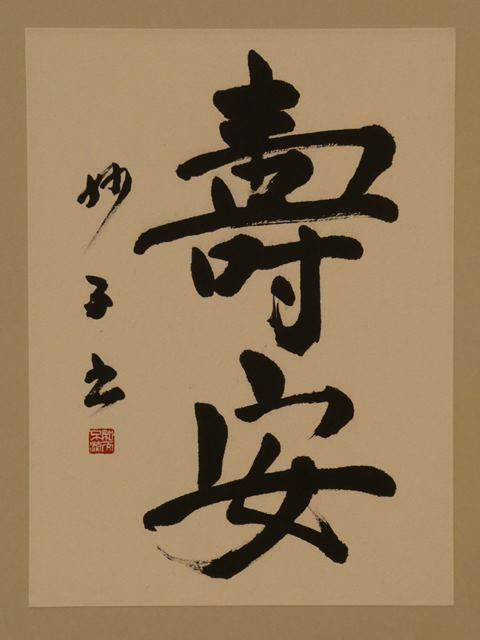 壽安
妙子书